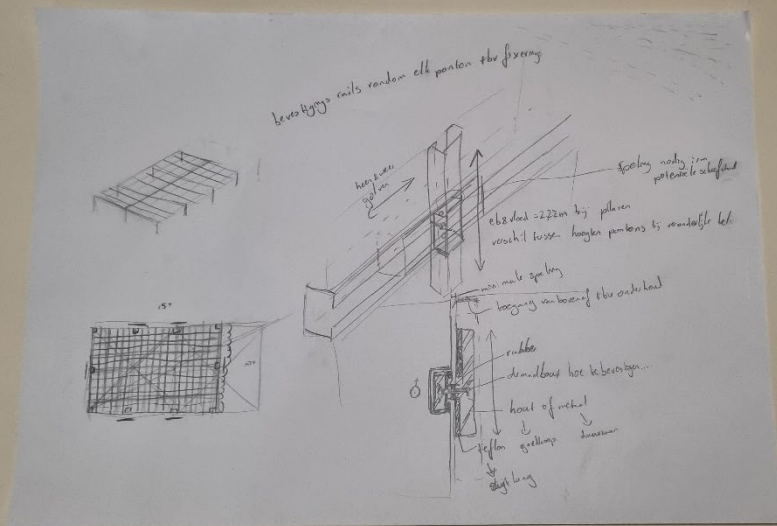 bevestigings rails rondom elk ponton tbv fixering
heen & weer
golven
speling nodig ivm
potentiele scheefstand
eb & vloed = 2,22m bij pilaren
verschil tussen hoogten pontons bij veranderlijke bel.
minimale speling
toegang van bovenaf tbv onderhoud
rubber
draadbout hoe te bevestigen...
hout of metaal
teflon goedkoop duurzaam